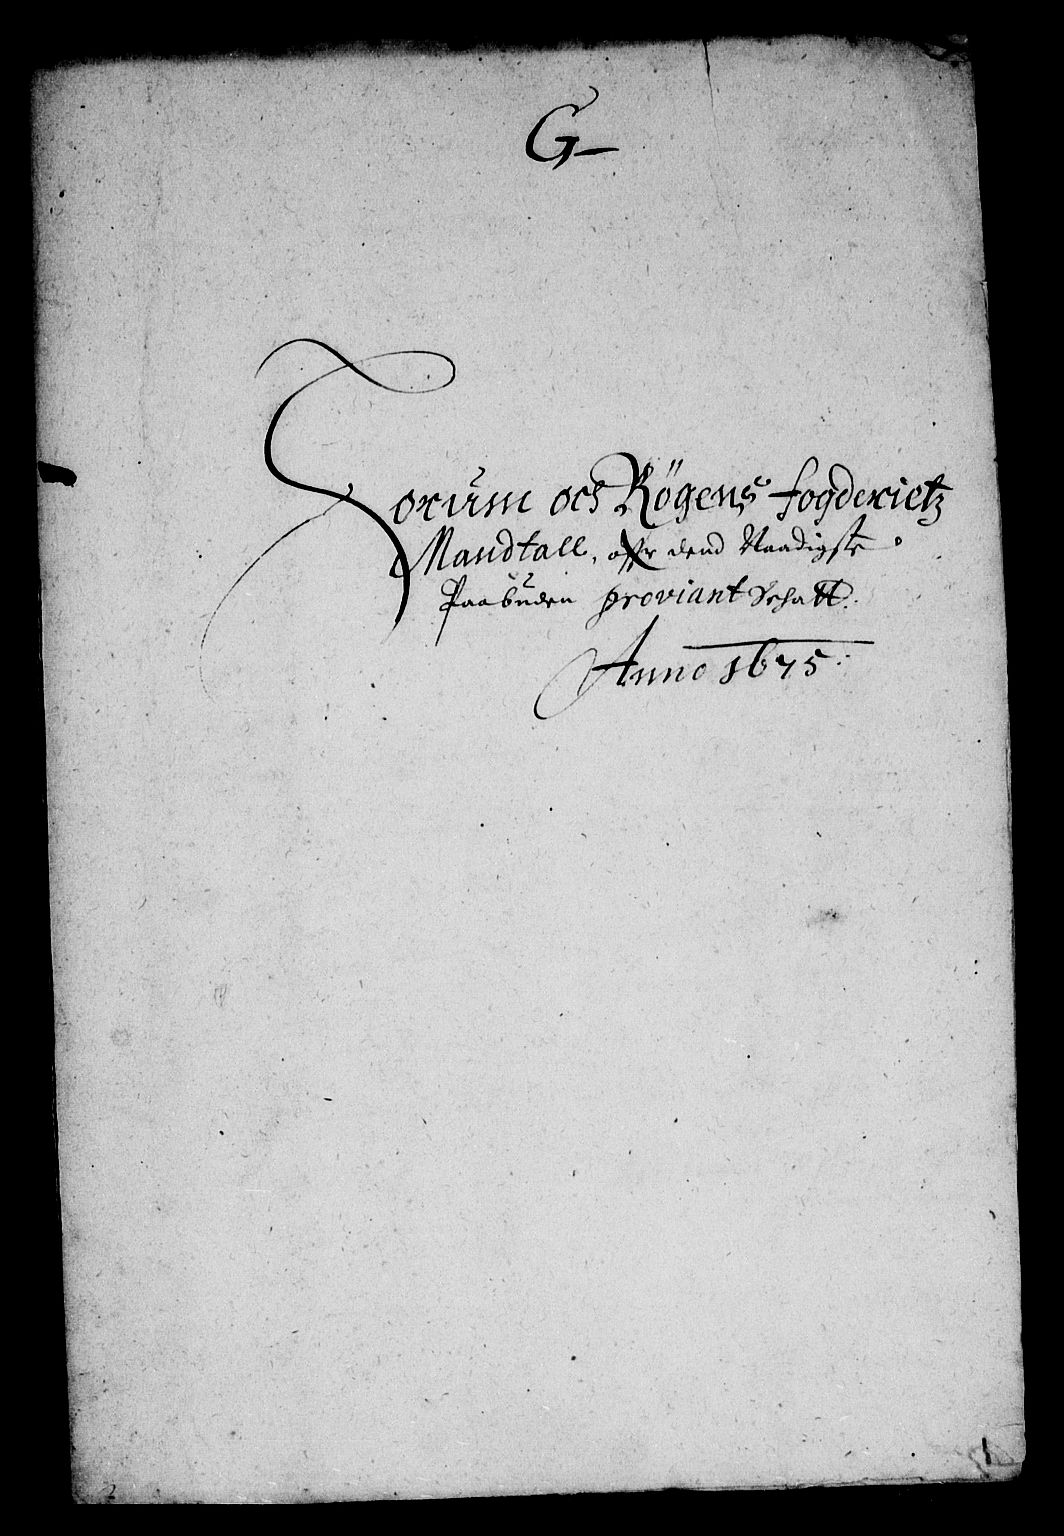 G
Sorum och Røgens fogderietz
Mandtall, offr dend Naadigste
Paabuden proviant Schatt.
Anno 1675.